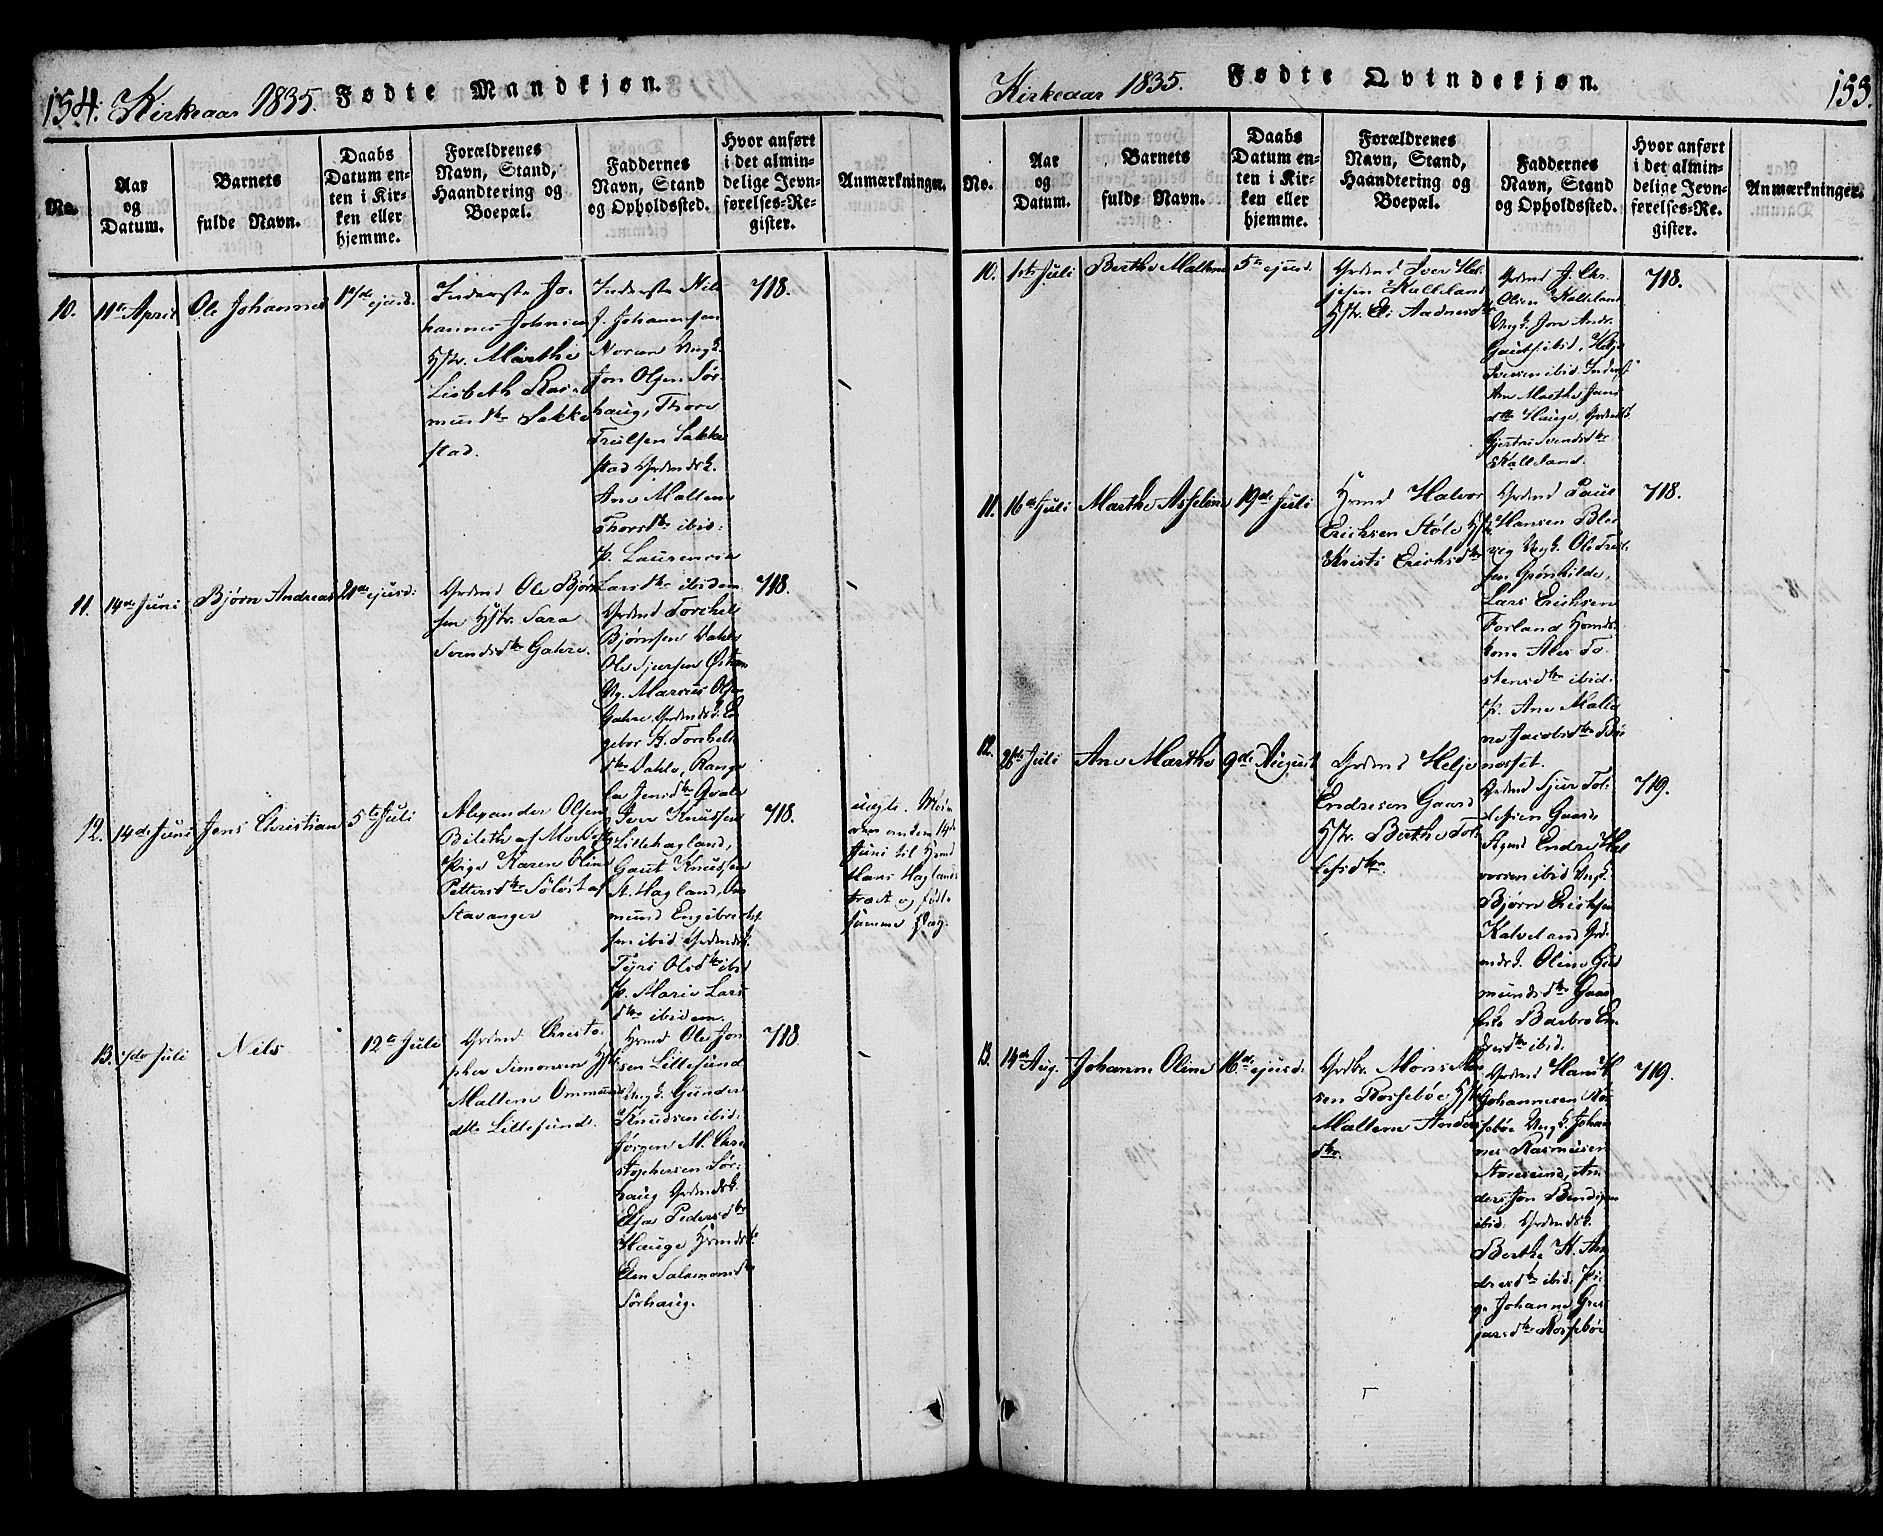 154. Kirkeaar 1835. Fødte Mandkjøn.
No.
Aar
og
Datum.
Barnets
fulde Navn.
Daabs
Datum en-
ten i Kir-
ken eller
hjemme.
Forældrenes
Navn, Stand,
Haandtering og
Boepæl.
Faddernes
Navn, Stand
og Opholdssted.
Hvor anført
i det almin-
delige Jevn-
førelses-Re-
gister.
Anmærkninger.
10. 11te April
Ole Johannes
17de ejusd.
Inderste Jo-
hannes Johnsen
Hstr. Marthe
Lisbeth Ras-
musdtr Sakke
stad.
Inderste Nils
J. Johannesen
Noreen Ungk.
Jon Olsen Sør-
haug, Thore
Trulsen Sakke
stad Grdmdsk.
Ane Malene
Thorsdtr ibid:
P. Laurencia
Larsdtr ibidem
718.
11. 14de Juni
Bjørn Andreas
21de ejusd:
Grdmd Ole Bjørn
sen Hstr. Sara
Svendsdtr Gahre.
Grdmd Torchell
Bjørnsen Dahle
Ole Sjursen
Ug. Marcus Olsen
Gahre Grdmdsk.
gebor K. Torchells
dtr Dahle, Range
la Jensdtr Qvale
718.
12. 14de Juni
Jens Christian
5te Juli
Alexander Olsen
af
Pige Karen Oline
Pettersdtr af
Stavanger
Iver Knutsen
Lillehagland,
Gaut Knudsen
St. Hagland,
mund Engebrects
sen ibid. Grdmdsk.
Tyri Olsdtr ibid
P. Marie Lars
dtr ibidem.
718.
uægte.
14de
Juni til Hrmd
Hans Haglands
og fødte
samme Dag.
13. Juli
Nils
12te Juli
Grdmd Christo-
pher Simonsen Hstr
Mallene Ommunds
dtr Lillesund.
Hrmd Ole Jon
sen Lillesund
Ungk. Gunder
Knudsen ibid:
Jørgen M. Chri
stophersen Sør-
haug Grdmdsk.
Pedersdtr
Hauge Hrmdsk.
Elen Salamonsdtr
Sørhaug.
718
Kirkeaar 1835. Fødte Qvindekjøn. 155.
No.
Aar
og
Datum.
Barnets
fulde Navn.
Daabs
Datum en-
ten i Kir-
ken eller
hjemme.
Forældrenes
Navn, Stand,
Haandtering og
Boepæl.
Faddernes
Navn, Stand
og Opholdssted.
Hvor anført
i det almin-
delige Jevn-
førelses-Re-
gister.
Anmærkninger.
10. 1ste Juli
Berthe Mallene
5te ejusd.
Grdmd Iver Hel-
jesen Kalleland
Hstr. Eli Aadnesdtr
Grdmd J. Chr.
Olsen Kalleland
Ungk. Jon Andr.
Gauts. ibid, Helje
Iversen ibid. Inderst
Ane Marthe Jans
dtr Hauge, Grdmdsk
Gjertrui Svendsdtr
Kalleland.
718.
11. 16de Juli
Marthe Asseline
19de Juli
Hrmd Halvor
Erichsen Støle Hstr
Kristi Erichsdtr
Grdmd Paul
Hansen Ble
vig Ungk. Ole Troel-
sen Grønhilde,
Lars Erichsen
Førland Hrmds-
kone Ales To-
stensdtr ibid:
P. Ane Malle
ne Jacobsdtr
næsset.
718.
12. 26de Juli
Ane Marthe
9de August
Grdmd Helje
Endresen Gaard
Hstr. Berthe Tol-
lefsdtr.
Grdmd Sjur Tol-
lefsen Gaard.
Endre Hal
vorsen ibid Ungk.
Bjørn Erichsen
Kalveland Grd-
mdsk. Oline Gud
mundsdtr Gaard
Barbro En-
dresdtr ibid.
719.
13. 14de Aug.
Johanne Oline
16de ejusd:
Grdbr. Mons
sen Rossebøe Hstr
Mallene Anders
dtr.
Grdmd Hans H
Johannesen Ros
sebøe Ungk. Johan
nes Rasmusen
Storesund, An-
ders Jon Bendixen
ibid. Grdmdsk.
Berthe K. An
dersdtr ibid: Pi-
ge Johanne Gre-
jarsdtr Rossebøe
719.